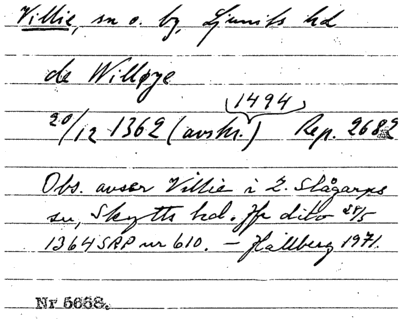 Villie, sn o. by, Ljunits hd
de Willøye
1494
20/12 1362 (avskr.) Rep. 2682
Obs. avser Villie i Ö. Slågarps
sn, Skytts hd. Jfr dito 28/5
1364 SRP nr 610. – Hallberg 1971.
Nr 5658.